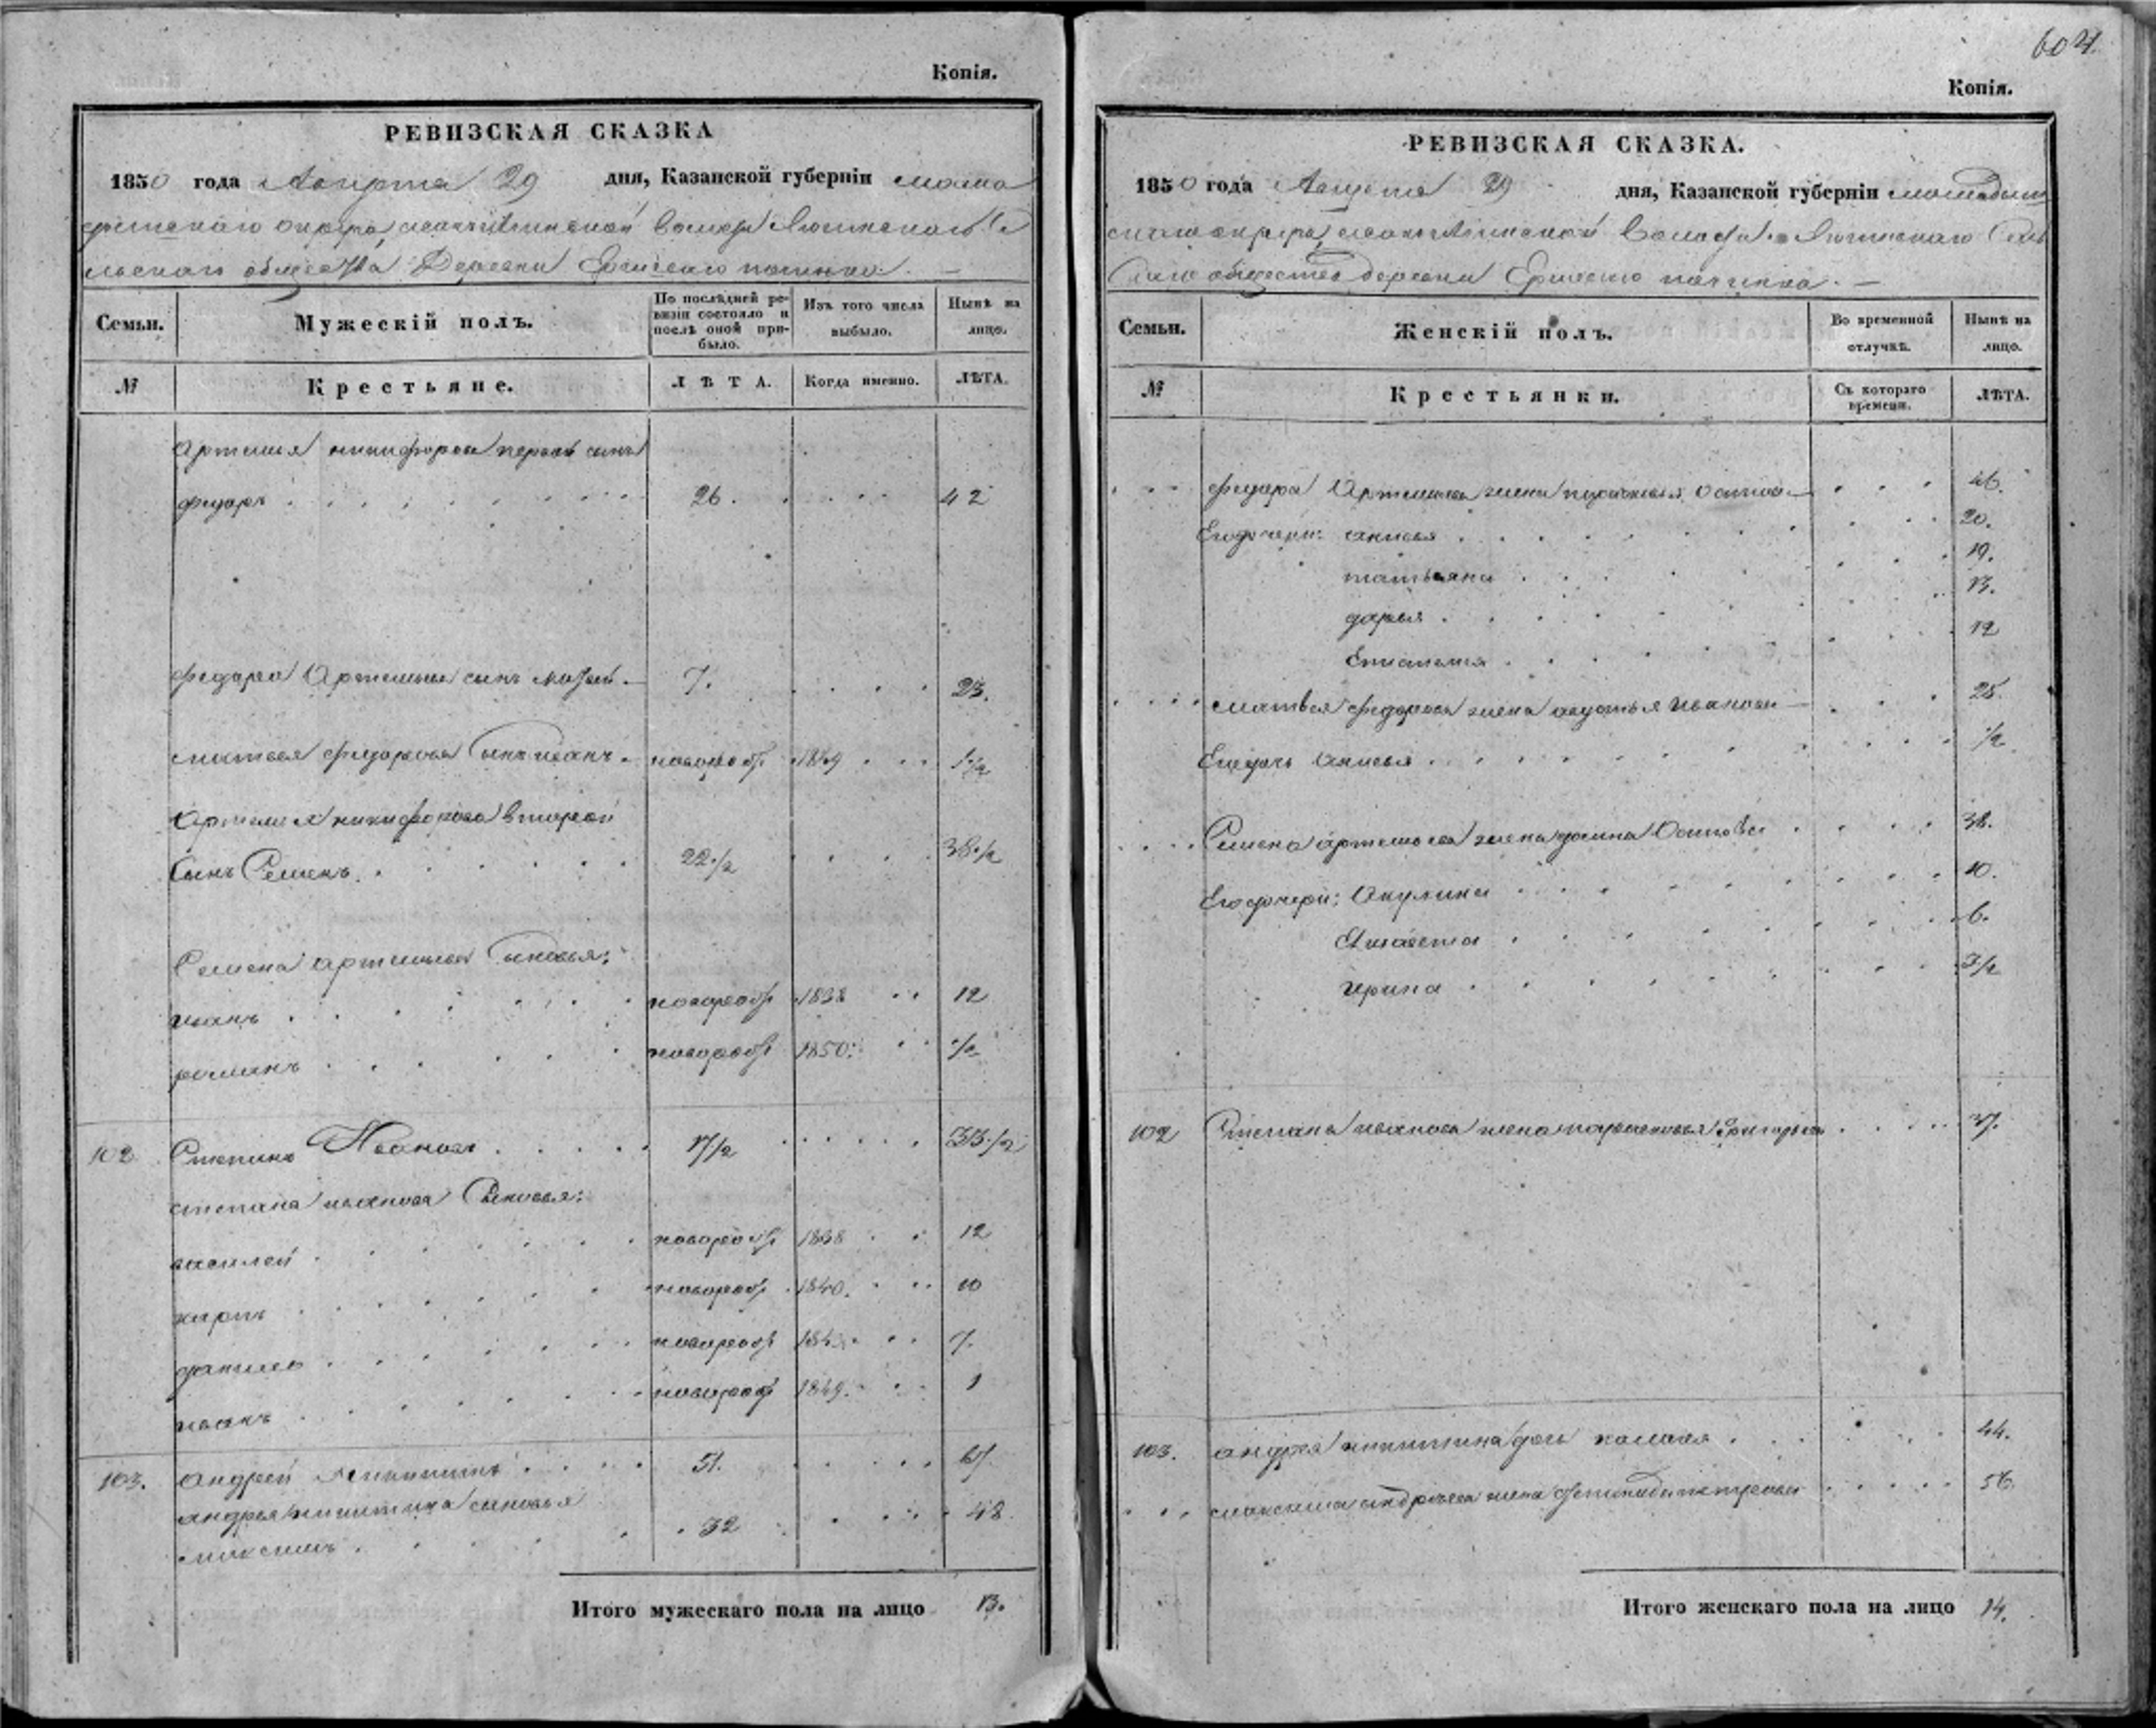 Копія.
РЕВИЗСКАЯ СКАЗКА
1850 года Августа 29 дня, Казанской губерніи мама
волости
льскаго общества Деревни починка. —
Семьи.
Мужескій полъ.
По послѣдней ре-
визіи состояло и
послѣ оной при-
было.
Изъ того числа
выбыло.
Нынѣ на
лицо.
№
Крестьяне.
ЛѢТА.
Когда именно.
ЛѢТА.
Артемья никифорова первой сынъ
федоръ 26. 42
федора Артемьева сынъ матвей 7. 23.
матвея федорова сынъ иванъ новорож 1849 1 1/2
Артемья никифорова второй
сынъ Семенъ 22 1/2 38 1/2
Семена артемьева сыновья:
иванъ новорож 1838 12
романъ новорож 1850 1/2
102 Степанъ Ивановъ 17 1/2 33 1/2
степана иванова сыновья:
василей новорож 1838 12
карпъ новорож 1840. 10
данило новорож 7.
иванъ новорож 1849. 1
103. андрей никитинъ 51. 67
андрея никитина сыновья
максимъ 32 48
Итого мужескаго пола на лицо 13.
604
Копія.
РЕВИЗСКАЯ СКАЗКА.
1850 года Августа 29 дня, Казанской губерніи мамадыш
скаго округа, волости
скаго общества деревни починка. —
Семьи.
Женскій полъ.
Во временной
отлучкѣ.
Нынѣ на
лицо.
№
Крестьянки.
Съ котораго
времени.
ЛѢТА.
федора Артемьева жена 46.
Его дочери: анисья 20.
татьяна 19.
дарья 13.
12
матвея федорова жена авдотья иванова 25.
Его дочь анисья 1/2
Семена артемьева жена домна Осипова 38.
Его дочери: Акулина 10.
6.
ирина 3/2
102 Степана иванова жена Григорьева 37.
103. андрея никитина дочь 44.
максима андреева жена петрова 56.
Итого женскаго пола на лицо 14.